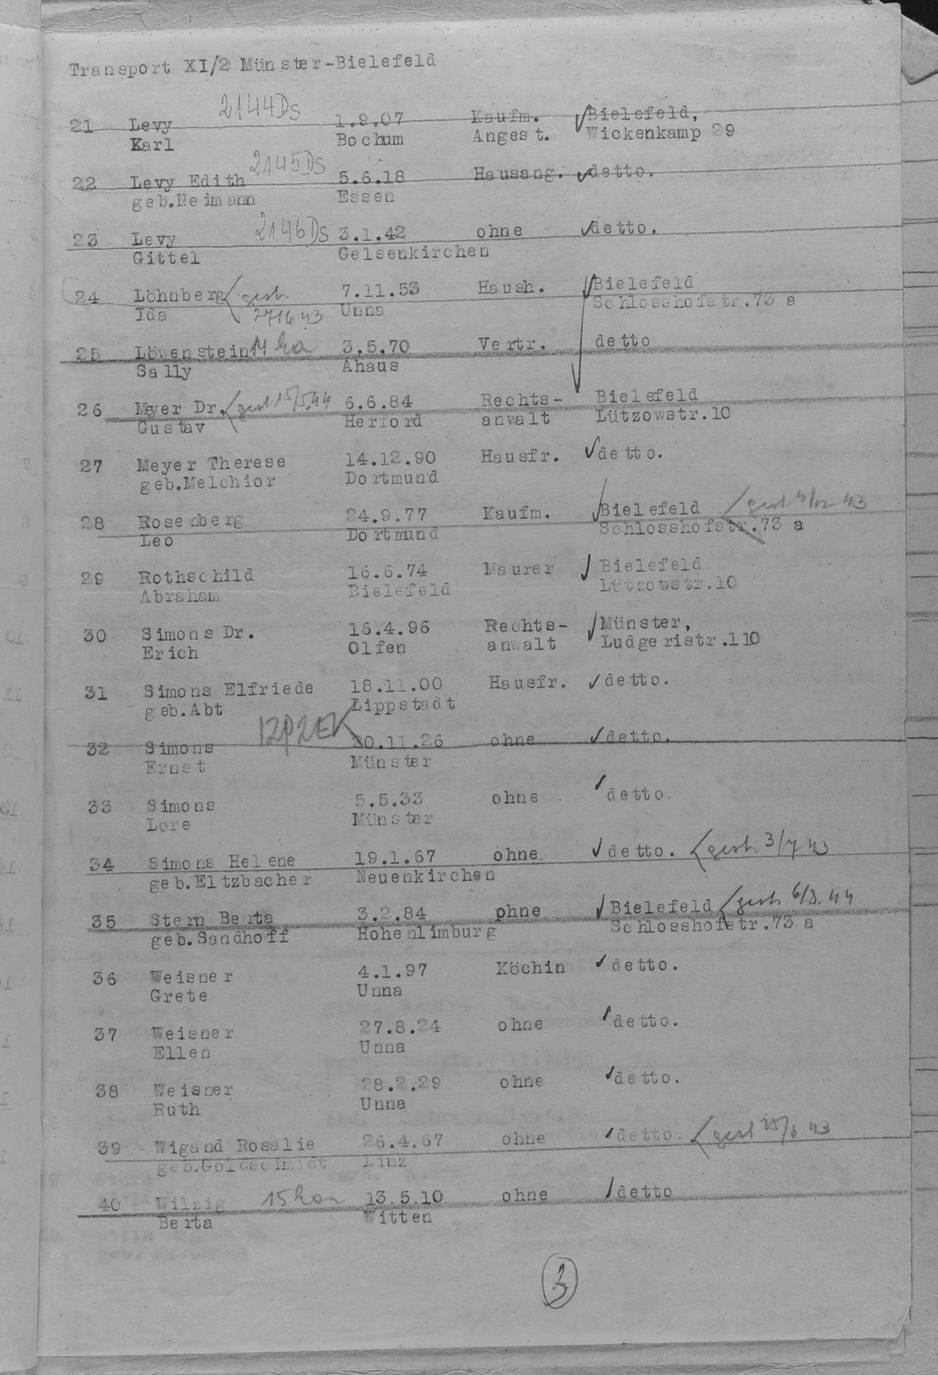 Transport XI/2 Münster-Bielefeld
21 Levy 2144Ds 1.9.07 Kaufm. Bielefeld,
Karl Bochum Angest. Wickenkamp 29
22 Levy Edith 2145Ds 5.6.18 Hausang. detto.
geb.Neimann Essen
23 Levy 2146Ds 3.1.42 ohne detto.
Gittel Gelsenkirchen
24 Löhnberg gest. 7.11.53 Haush. Bielefeld
Ida 27/6 43 Unna Schlosshofstr.73 a
25 Löwenstein 3.5.70 Vertr. detto
Sally Ahaus
26 Meyer Dr. gest 15/5.44 6.6.84 Rechts- Bielefeld
Gustav Herford anwalt Lützowstr.10
27 Meyer Therese 14.12.90 Hausfr. detto.
geb.Melchior Dortmund
28 Rosenberg 24.9.77 Kaufm. Bielefeld gest 4/12 43
Leo Dortmund Schlosshofstr.73 a
29 Rothschild 16.6.74 Maurer Bielefeld
Abraham Bielefeld Lützowstr.10
30 Simons Dr. 16.4.96 Rechts- Münster,
Erich Olfen anwalt Ludgeristr.110
31 Simons Elfriede 18.11.00 Hausfr. detto.
geb.Abt Lippstadt
32 Simons 20.11.26 ohne detto.
Ernst Münster
33 Simons 5.5.33 ohne detto.
Lore Münster
34 Simons Helene 19.1.67 ohne detto. gest. 3/7 43
geb.Eltzbacher Neuenkirchen
35 Stern Berta 3.2.84 phne Bielefeld gest 6/3.44
geb.Sandhoff Hohenlimburg Schlosshofstr.73 a
36 Weisner 4.1.97 Köchin detto.
Grete Unna
37 Weisner 27.8.24 ohne detto.
Ellen Unna
38 Weisner 28.2.29 ohne detto.
Ruth Unna
39 Wigand Rosalie 26.4.67 ohne detto. gest 43
geb.Goldschmidt Linz
40 Wilzig 13.5.10 ohne detto
Berta Witten
3